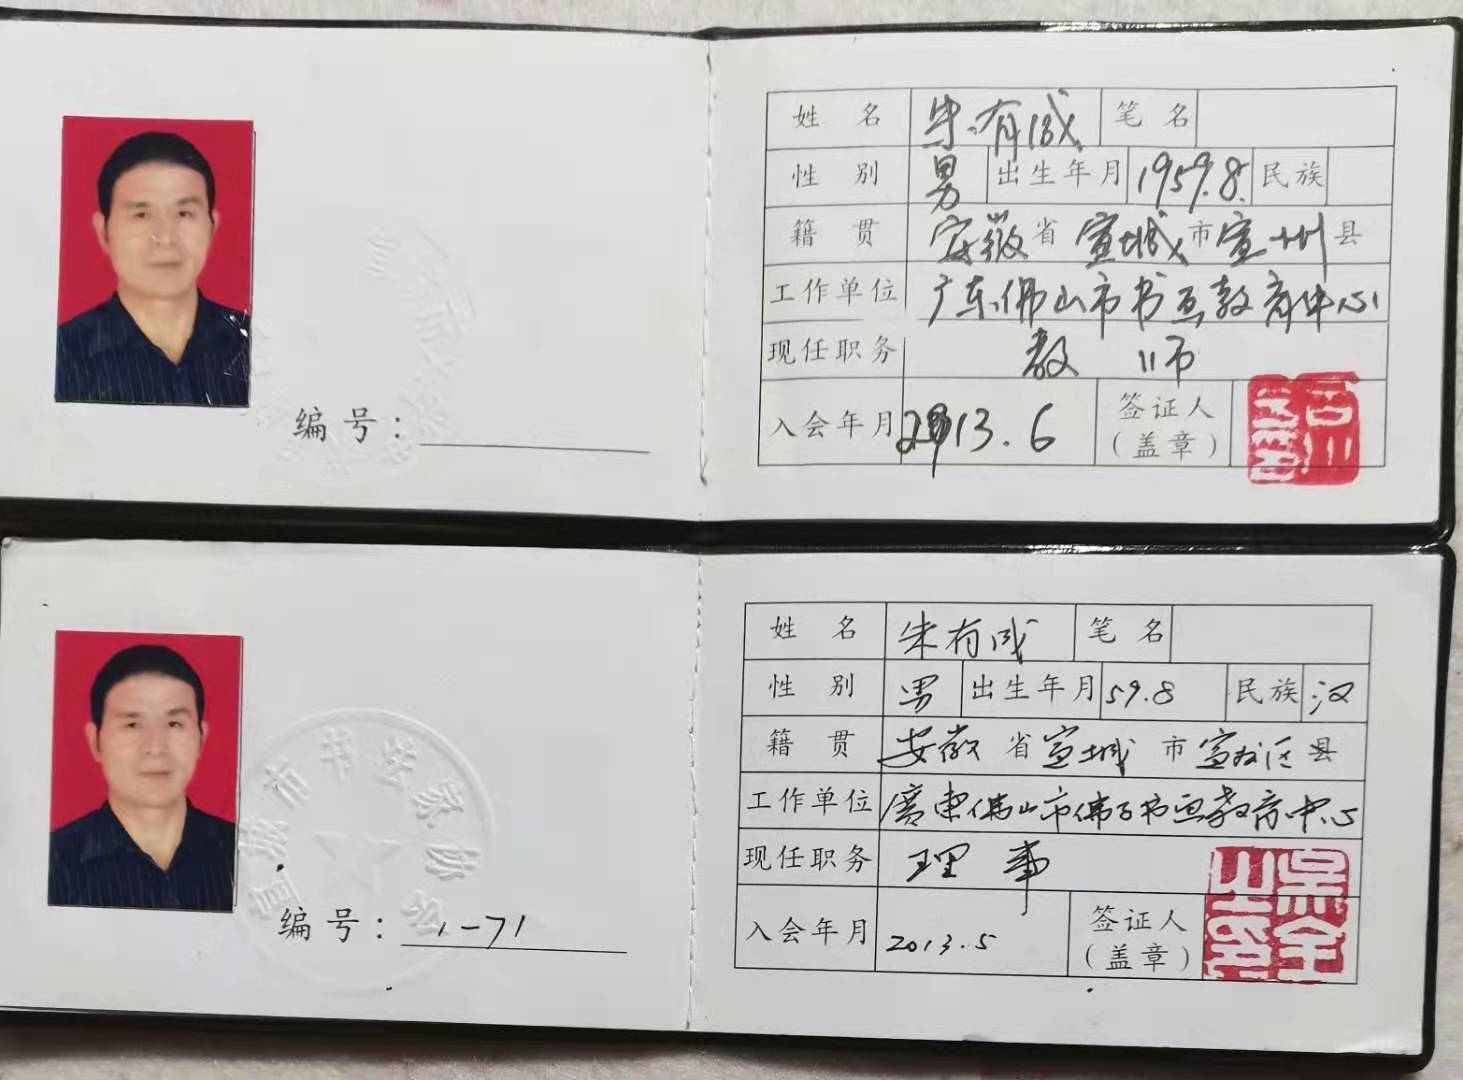 编号：
姓名 朱有成 笔名
性别 男 出生年月 1959.8. 民族
籍贯 安徽省 宣城市 宣州县
工作单位 广东佛山市书画教育中心
现任职务 教师
入会年月 2013.6 签证人
（盖章）
市书法家协会
编号： 1-71
姓名 朱有成 笔名
性别 男 出生年月 59.8 民族 汉
籍贯 安徽省 宣城市 宣州区县
工作单位 廣東佛山市佛子书画教育中心
现任职务 理事
入会年月 2013.5 签证人
（盖章）